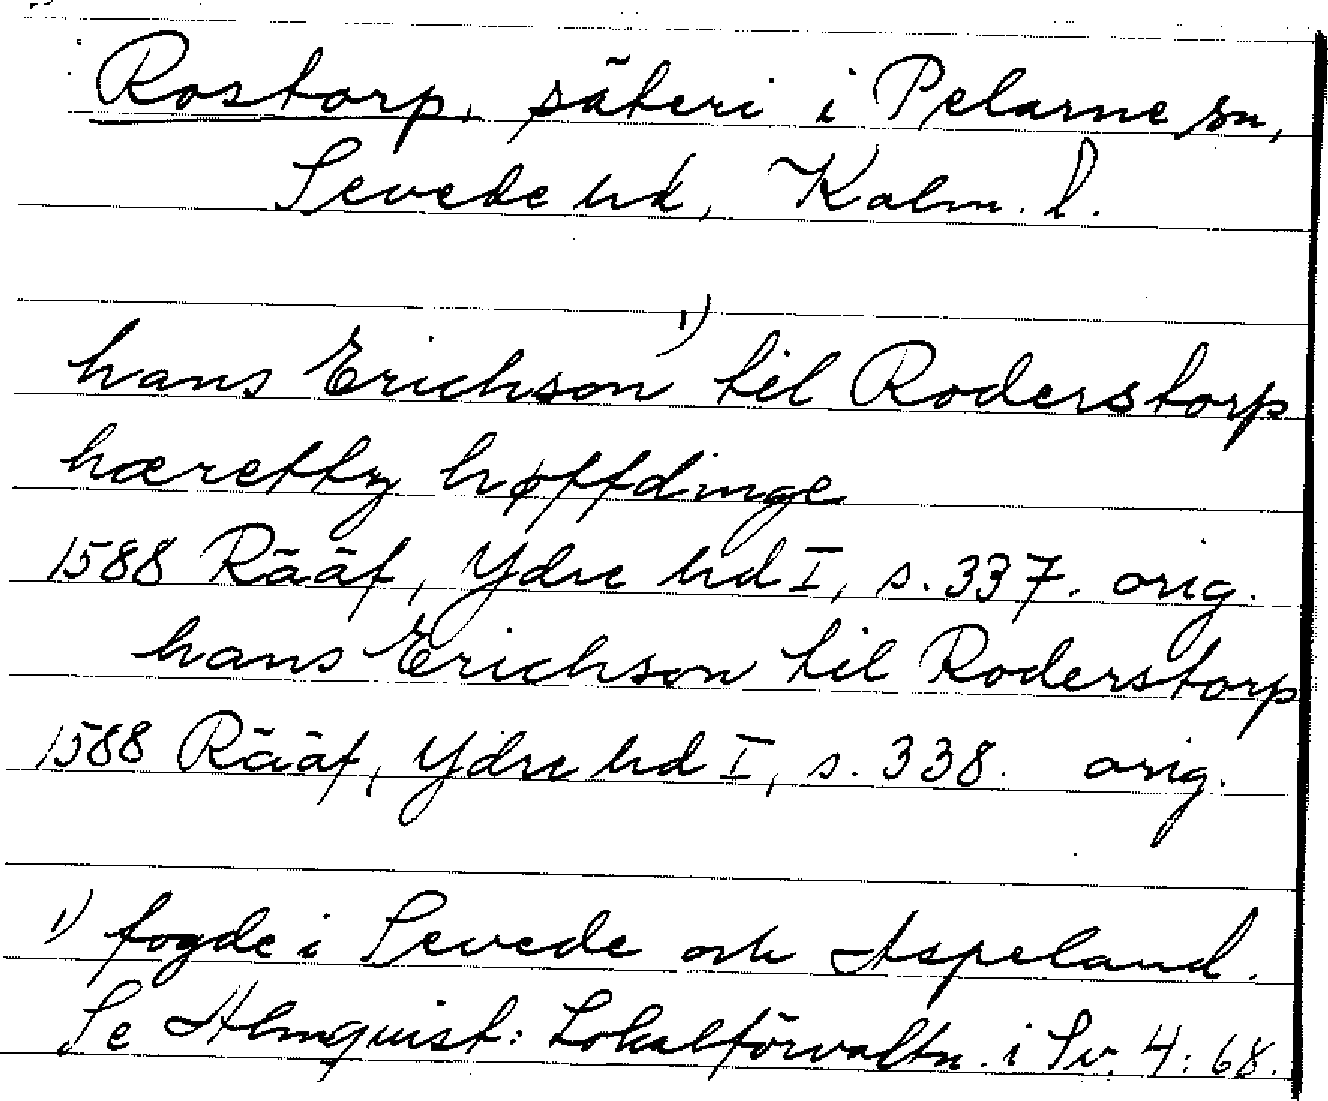 Rostorp, säteri i Pelarne sn,
Sevede hd, Kalm. l.
hans Erichson 1) til Roderstorp
hæretby høffdinge
1588 Rääf, Ydre hd I, s. 337. orig.
hans Erichson til Roderstorp
1588 Rääf, Ydre hd I, s. 338. orig.
1) fogde i Sevede och Aspeland.
Se Almquist: Lokalförvaltn. i Sv. 4:68.